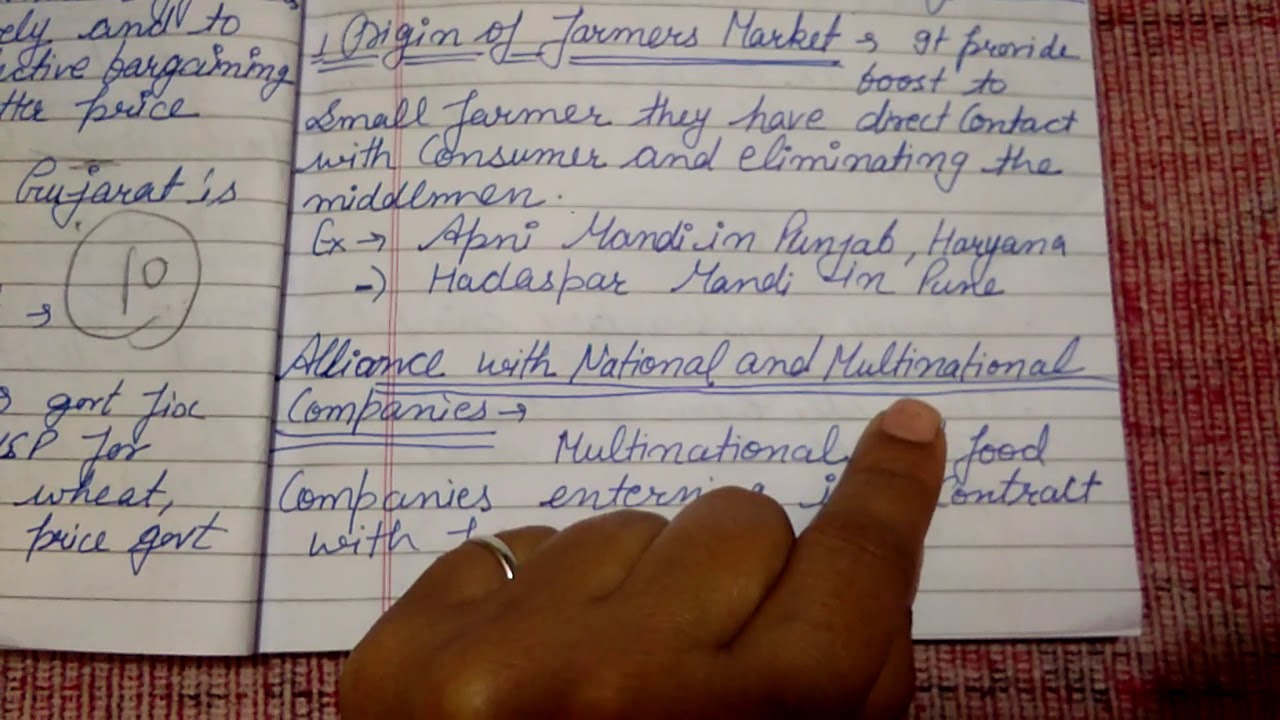 ely and to
ctive bargaining
tter price
Gujarat is
10
govt fix
MSP for
wheat,
price govt
Origin of Farmers Market → It provide
boost to
Small farmer they have direct Contact
with Consumer and eliminating the
middlemen.
Ex → Apni Mandi in Punjab, Haryana
→ Hadaspar Mandi in Pune
Alliance with National and Multinational
Companies →
Multinational food
Companies entering Contract
with